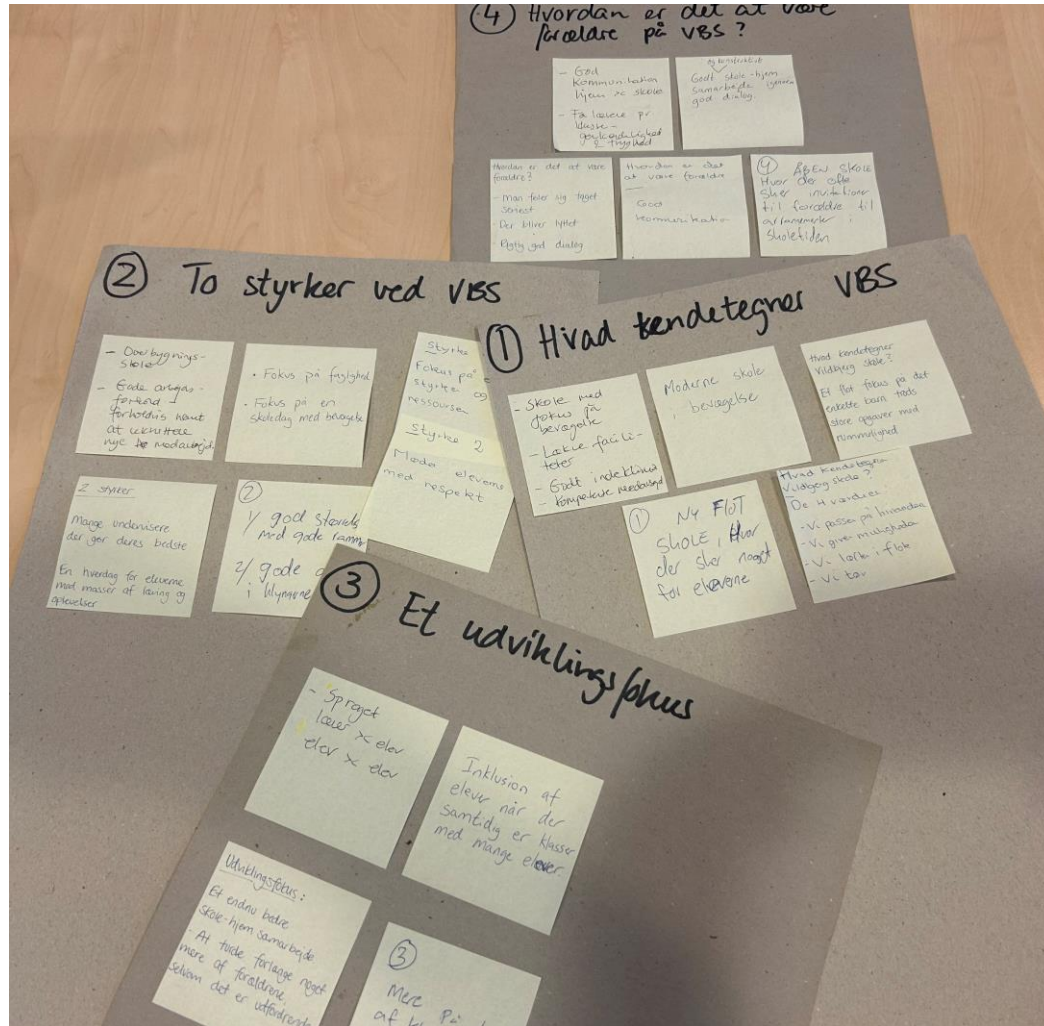 ④ Hvordan er det at være
forældre på VBS?
- God
kommunikation
hjem >< skole
- Få lærere pr
klasse -
genkendelighed
& tryghed
og konstruktivt
Godt skole-hjem
samarbejde igennem
god dialog.
Hvordan er det at være
forældre?
- Man føler sig taget
seriøst
- Der bliver lyttet
- Rigtig god dialog
Hvordan er det
at være forældre
God
kommunikation
④ ÅBEN SKOLE
Hvor der ofte
sker invitationer
til forældre til
arrangementer i
skoletiden
② To styrker ved VBS
- Overbygnings-
skole
- Gode arbejds-
forhold -
forholdsvis nemt
at rekruttere
nye medarbejd.
• Fokus på faglighed
• Fokus på en
skoledag med bevægelse
Styrke
Fokus på
styrker og
ressourser
Styrke 2
Møde eleverne
med respekt
2 styrker
Mange undervisere
der gør deres bedste
En hverdag for eleverne
med masser af læring og
oplevelser
②
1/ god størrelse
med gode ramme
2/ gode
i klyngerne
① Hvad kendetegner VBS
- Skole med
fokus på
bevægelse
- Lækre facili-
teter
- Godt indeklima
- Kompetente medarbejd
Moderne skole
i bevægelse
Hvad kendetegner
Vildbjerg skole?
Et flot fokus på det
enkelte barn trods
store opgaver med
rummelighed
① NY FLOT
SKOLE, Hvor
der sker noget
for eleverne
Hvad kendetegner
Vildbjerg skole?
De 4 værdier
- Vi passer på hinanden
- Vi giver muligheder
- Vi løfter i flok
- Vi tør
③ Et udviklingsfokus
- Sproget
lærer >< elev
elev >< elev
Inklusion af
elever når der
samtidig er klasser
med mange elever
Udviklingsfokus:
Et endnu bedre
skole-hjem samarbejde
- At turde forlange noget
mere af forældrene,
selvom det er udfordrende
③
Mere på
af